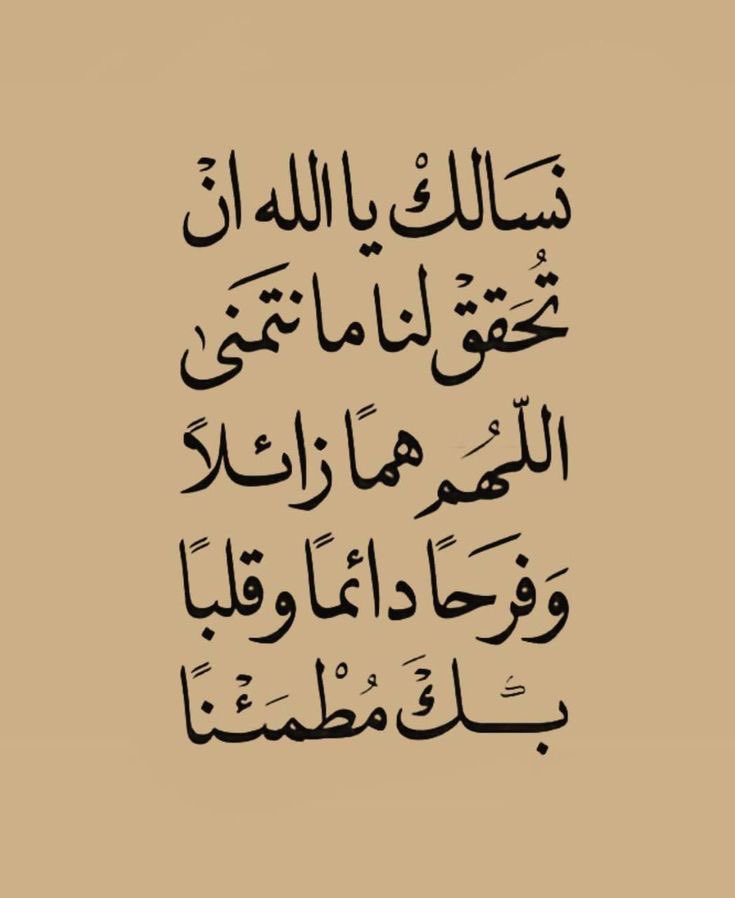 نسَالكْ يا الله انْ
تُحَققْ لنا ما نتمَنىٰ
اللّهُم همًا زائلاً
وَفرَحًا دائمًا وقلبًا
بك مُطْمَئْنًا